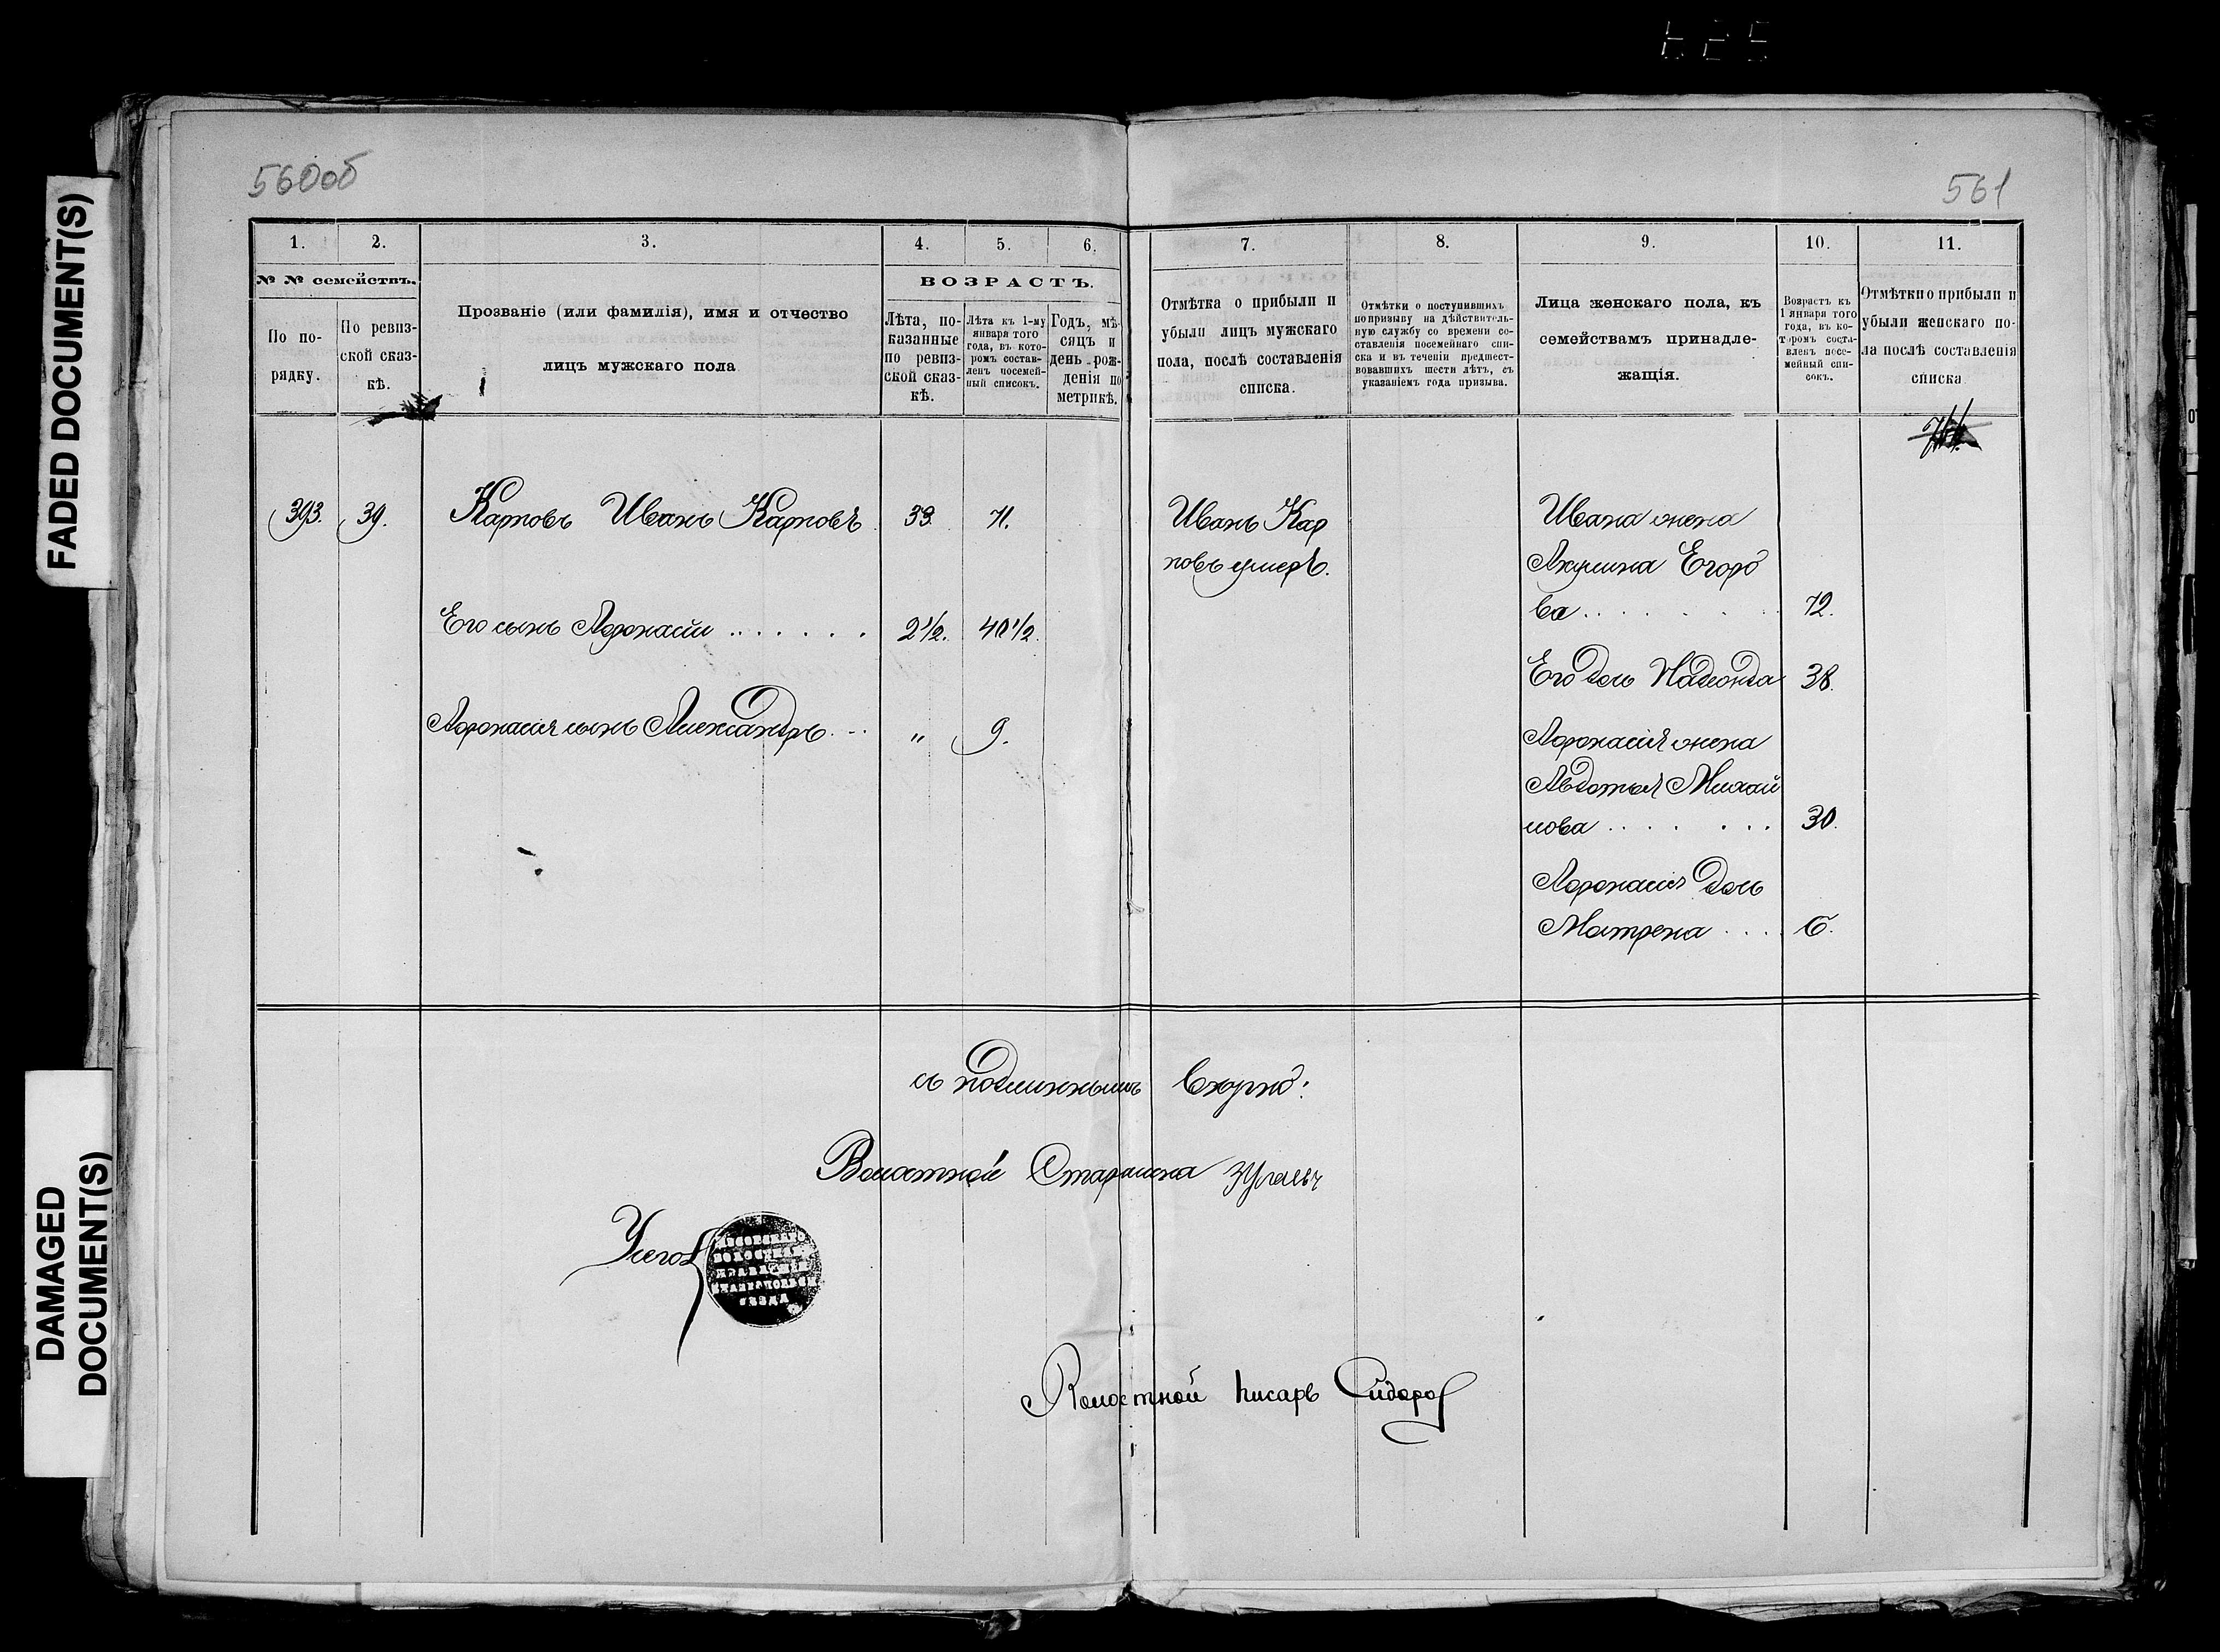 FADED DOCUMENT(S)
DAMAGED
DOCUMENT(S)
560об
561
1. 2. 3. 4. 5. 6. 7. 8. 9. 10. 11.
№ № семействъ.
По по-
рядку.
По ревиз-
ской сказ-
кѣ.
Прозваніе (или фамилія), имя и отчество
лицъ мужскаго пола
ВОЗРАСТЪ.
Лѣта, по-
казанные
по ревиз-
ской сказ-
кѣ.
Лѣта къ 1-му
января того
года, въ кото-
ромъ состав-
ленъ посемей-
ный списокъ.
Годъ, мѣ-
сяцъ и
день рож-
денія по
метрикѣ.
Отмѣтка о прибыли и
убыли лицъ мужскаго
пола, послѣ составленія
списка.
Отмѣтки о поступившихъ
по призыву на дѣйствитель-
ную службу со времени со-
ставленія посемейнаго спи-
ска и въ теченіи предшест-
вовавшихъ шести лѣтъ, съ
указаніемъ года призыва.
Лица женскаго пола, къ
семействамъ принадле-
жащія.
Возрастъ къ
1 января того
года, въ ко-
торомъ соста-
вленъ посе-
мейный спи-
сокъ.
Отмѣтки о прибыли и
убыли женскаго по-
ла послѣ составленія
списка
393. 39. Карповъ Иванъ Карповъ 33. 71.
Его сынъ Афонасiй . . . . . . . 2½. 40½.
Афонасiя сынъ Александръ . . . " 9.
Иванъ Кар
повъ умеръ.
Ивана жена
Акулина Егоро
ва . . . . . . 72.
Его дочь Надежда 38.
Афонасiя жена
Авдотья Михай
лова . . . . . . . 30.
Афонасiя дочь
Матрена . . . . 6.
съ подлиннымъ вѣрно:
Волостной Старшина
Волостной писарь Сидоров
ВОЛОСТНАГО
ПРАВЛЕНІЯ
УѢЗДА